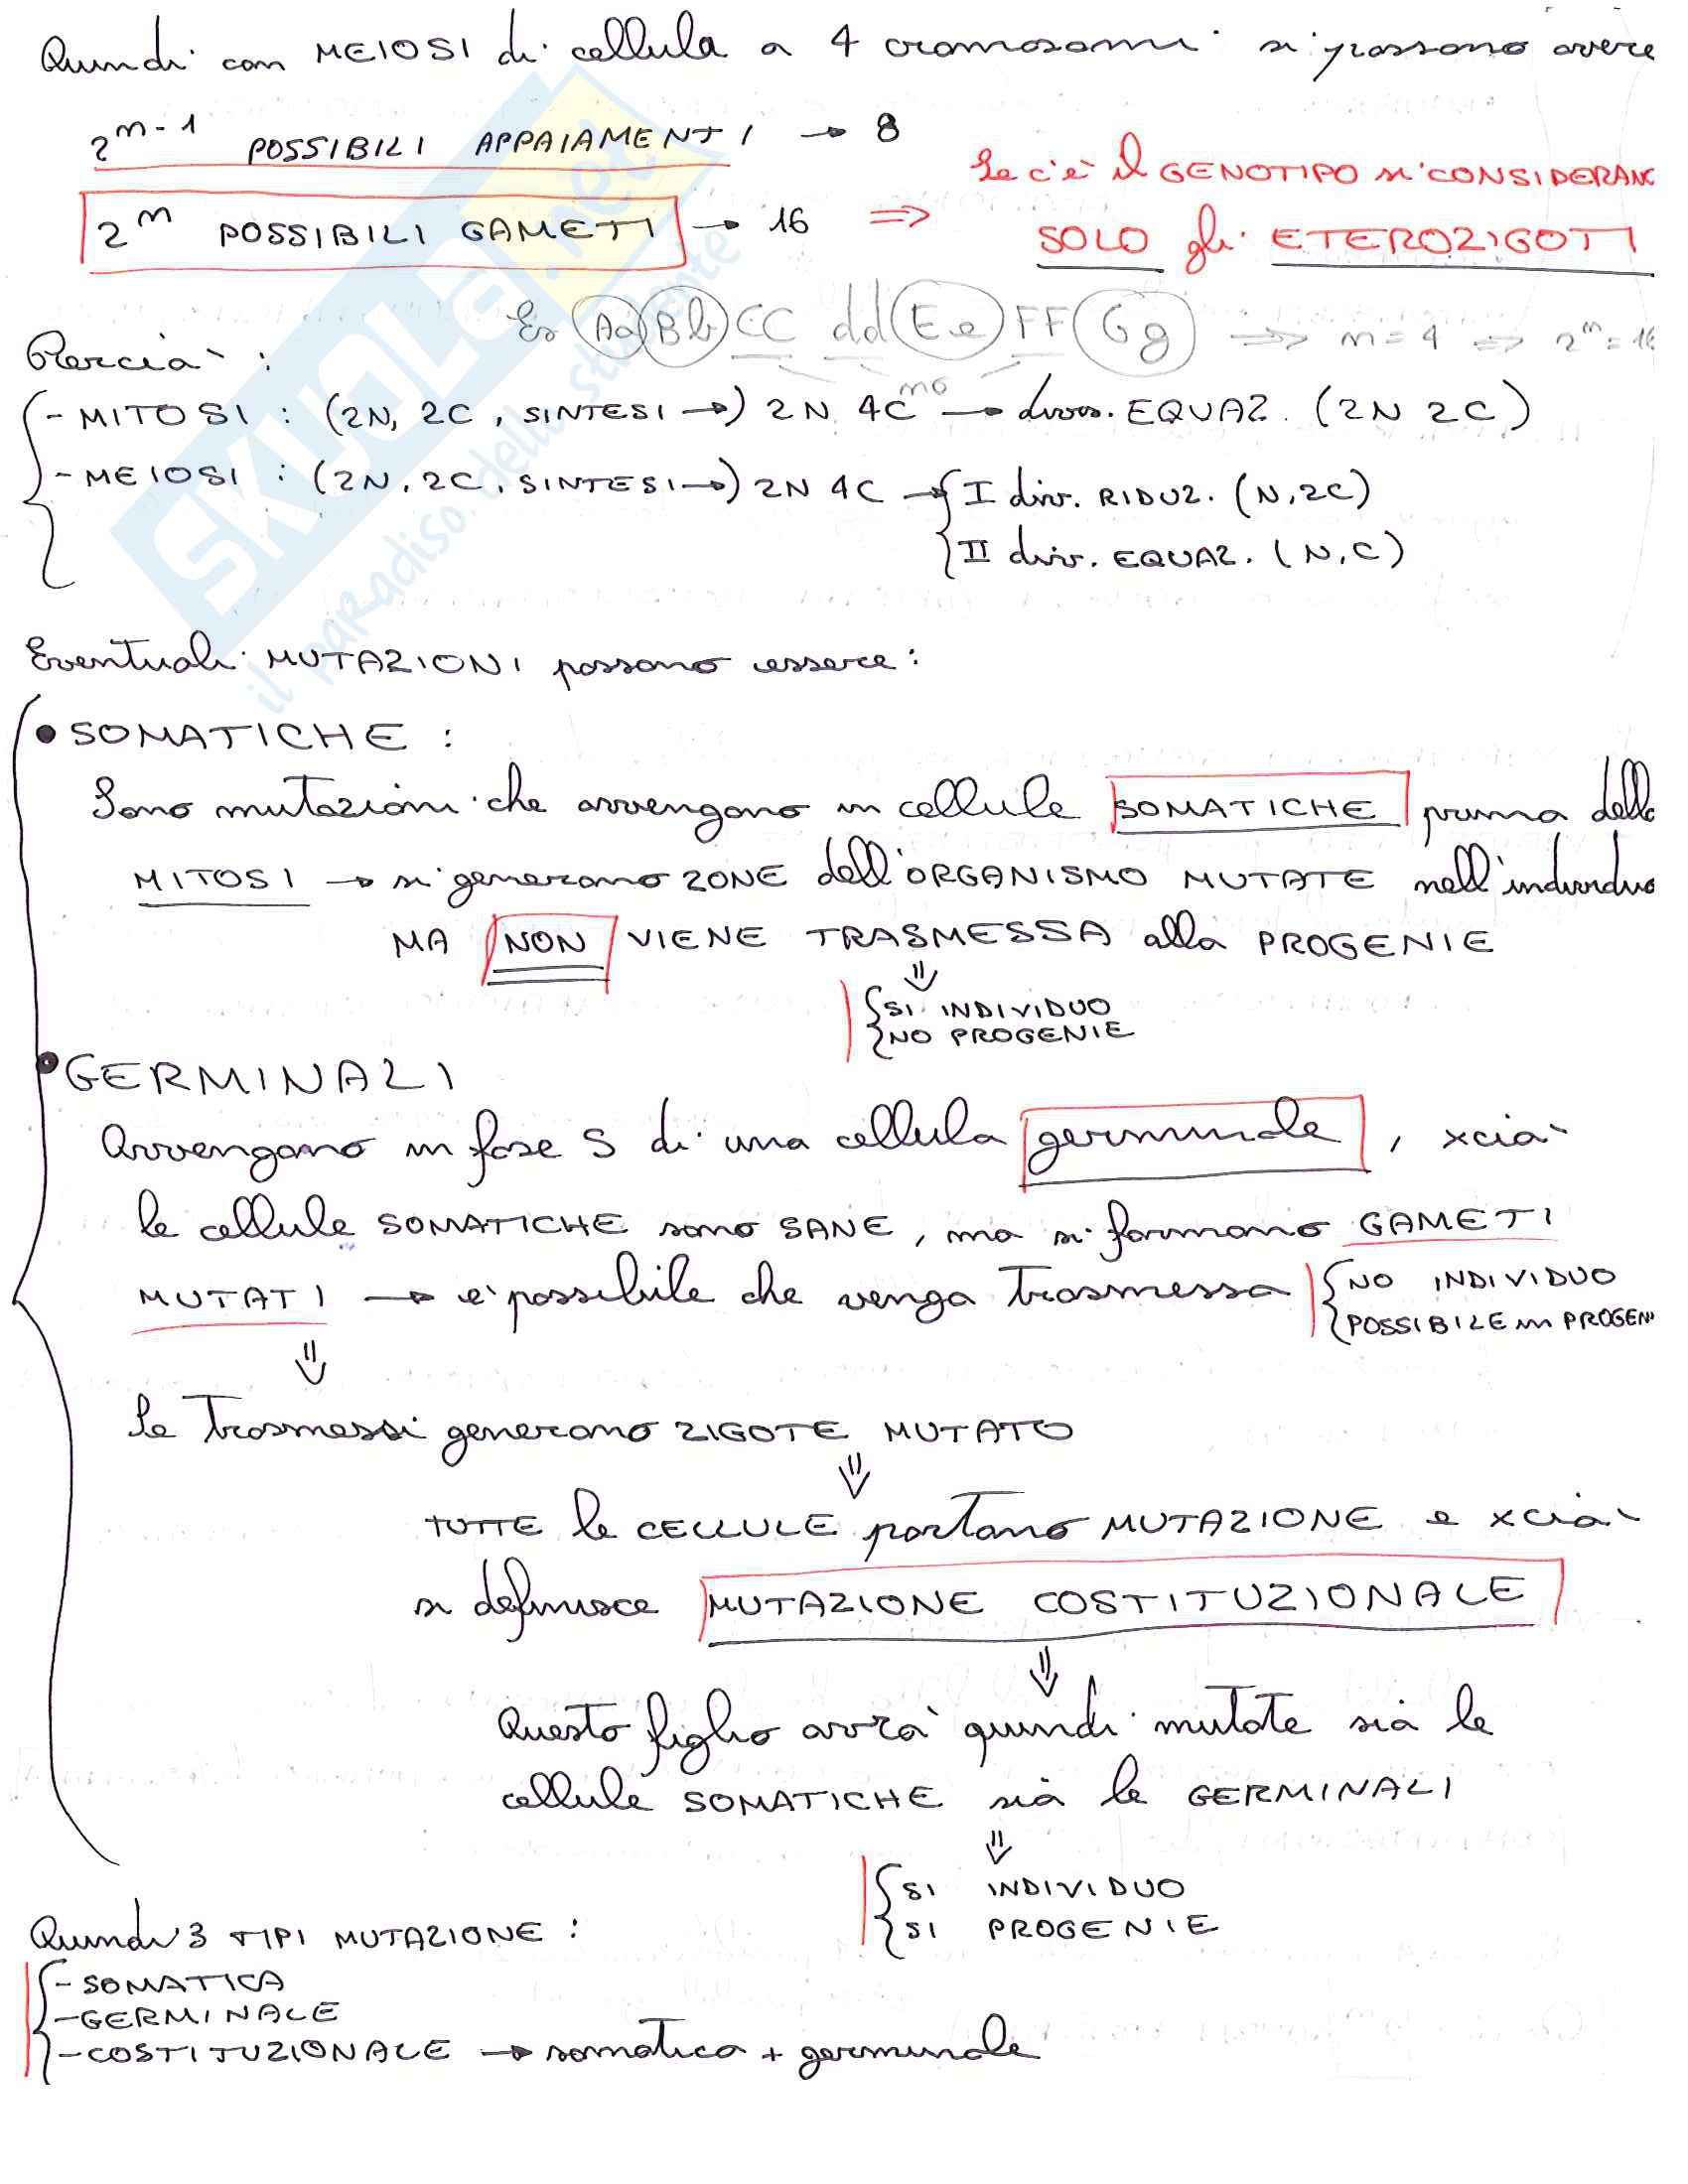 Quindi con MEIOSI di cellula a 4 cromosomi si possono avere
2^(m-1) POSSIBILI APPAIAMENTI → 8
2^m POSSIBILI GAMETI → 16 ⇒ Se c'è il GENOTIPO si CONSIDERANO
SOLO gli ETEROZIGOTI
Es Aa Bb CC dd Ee FF Gg ⇒ m=4 ⇒ 2^m=16
no
Perciò :
- MITOSI : (2N, 2C, SINTESI→) 2N 4C → divis. EQUAZ. (2N 2C)
- MEIOSI : (2N, 2C, SINTESI→) 2N 4C → I div. RIDUZ. (N, 2C)
II div. EQUAZ. (N, C)
Eventuali MUTAZIONI possono essere :
• SOMATICHE :
Sono mutazioni che avvengono in cellule SOMATICHE prima della
MITOSI → si generano ZONE dell'ORGANISMO MUTATE nell'individuo
MA NON VIENE TRASMESSA alla PROGENIE
⇓
SI INDIVIDUO
NO PROGENIE
• GERMINALI
Avvengono in fase S di una cellula germinale, xciò
le cellule SOMATICHE sono SANE, ma si formano GAMETI
MUTATI → è possibile che venga trasmessa NO INDIVIDUO
POSSIBILE in PROGENI
⇓
Se trasmessi generano ZIGOTE MUTATO
⇓
TUTTE le CELLULE portano MUTAZIONE e xciò
si definisce MUTAZIONE COSTITUZIONALE
⇓
Questo figlio avrà quindi mutate sia le
cellule SOMATICHE sia le GERMINALI
⇓
SI INDIVIDUO
SI PROGENIE
Quindi 3 TIPI MUTAZIONE :
- SOMATICA
- GERMINALE
- COSTITUZIONALE → somatica + germinale
SKUOLA.net
il paradiso dello studente